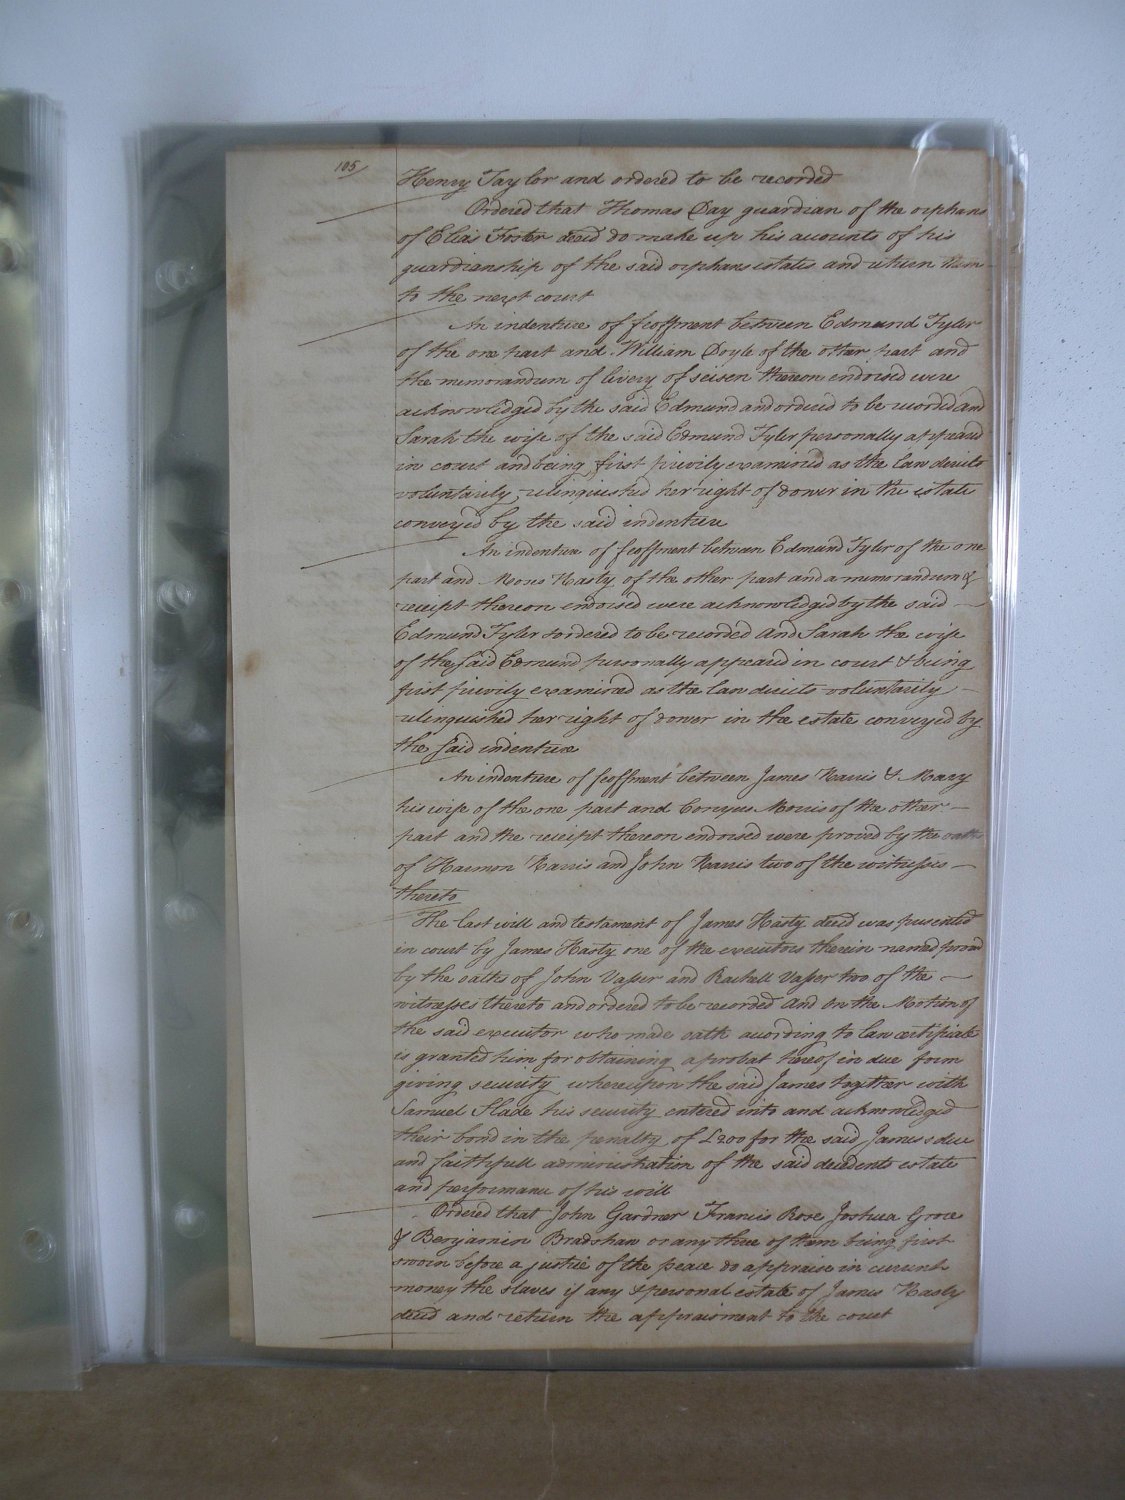 105
Henry Taylor and ordered to be recorded
Ordered that Thomas Day guardian of the orphans
of Elias Foster decd do make up his accounts of his
guardianship of the said orphans estates and return them
to the next court
An indenture of feoffment between Edmund Tyler
of the one part and William Doyle of the other part and
the memorandum of livery of seisen thereon endorsed were
acknowledged by the said Edmund and ordered to be recorded and
Sarah the wife of the said Edmund Tyler personally appeared
in court and being first privily examined as the law directs
voluntarily relinquished her right of dower in the estate
conveyed by the said indenture
An indenture of feoffment between Edmund Tyler of the one
part and Hasty of the other part and a memorandum &
receipt thereon endorsed were acknowledged by the said
Edmund Tyler & ordered to be recorded and Sarah the wife
of the said Edmund personally appeared in court & being
first privily examined as the law directs voluntarily
relinquished her right of dower in the estate conveyed by
the said indenture
An indenture of feoffment between James Harris & Mary
his wife of the one part and Morris of the other
part and the receipt thereon endorsed were proved by the oath
of Harmon Harris and John Harris two of the witnesses
thereto
The last will and testament of James Hasty decd was presented
in court by James Hasty one of the executors therein named proved
by the oaths of John Vasser and Rachell Vasser two of the
witnesses thereto and ordered to be recorded and on the Motion of
the said executor who made oath according to law certificate
is granted him for obtaining a probat thereof in due form
giving security whereupon the said James together with
Samuel Slade his security entered into and acknowledged
their bond in the penalty of £200 for the said James's due
and faithfull administration of the said decedents estate
and performance of his will
Ordered that John Gardner Francis Rose Joshua Groce
& Benjamin Bradshaw or any three of them being first
sworn before a justice of the peace do appraise in current
money the slaves if any & personal estate of James Hasty
decd and return the appraisment to the court